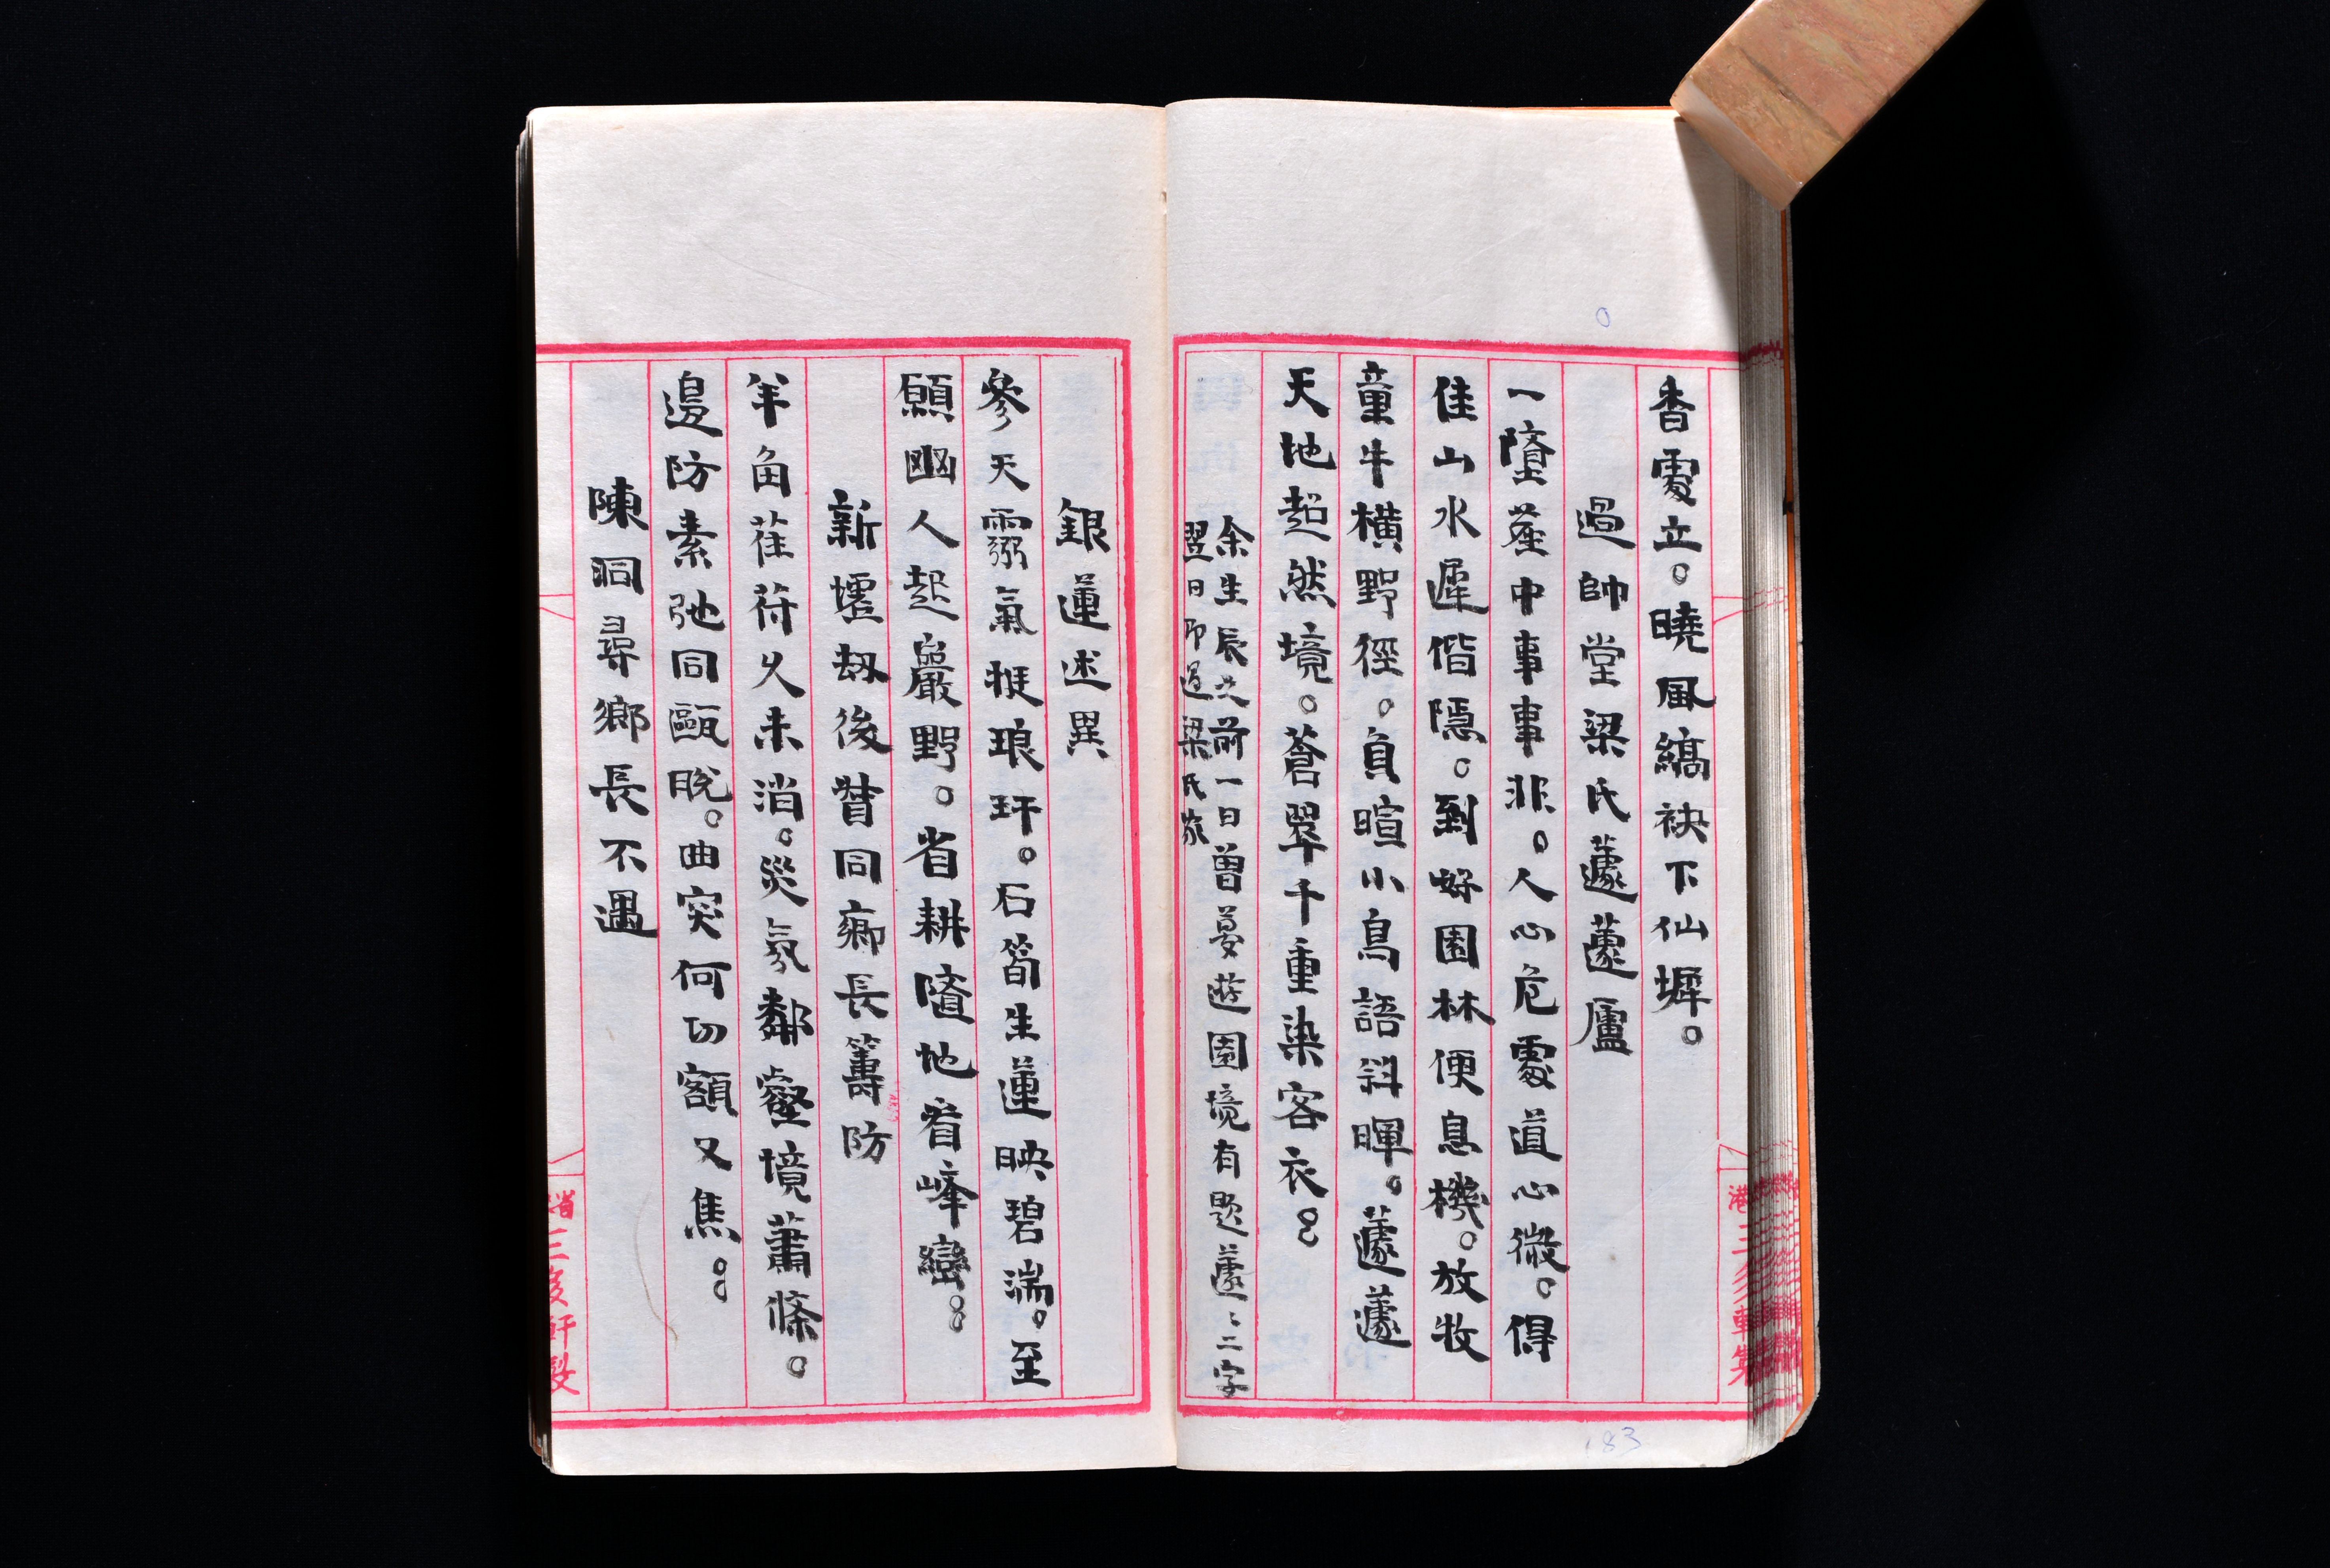 香處立。曉風縞袂下仙墀。
過帥堂梁氏蘧蘧廬
一墮塵中事事非。人心危處道心微。得
佳山水遲偕隱。到好園林便息機。放牧
童牛橫野徑。負暄小鳥語斜暉。蘧蘧
天地超然境。蒼翠千重染客衣。
余生辰之前一日曾夢遊園境有題蘧〻二字
翌日即過梁氏家
銀蓮述異
參天霸氣挺琅玕。石筍生蓮映碧湍。至
願幽人起巖野。省耕隨地看峰巒。
新壚劫後督同鄉長籌防
羊角萑苻久未消。災氛鄰壑境蕭條。
邊防素弛同甌脫。曲突何切額又焦。
陳洞尋鄉長不遇
港三多軒製
省三多軒製
183